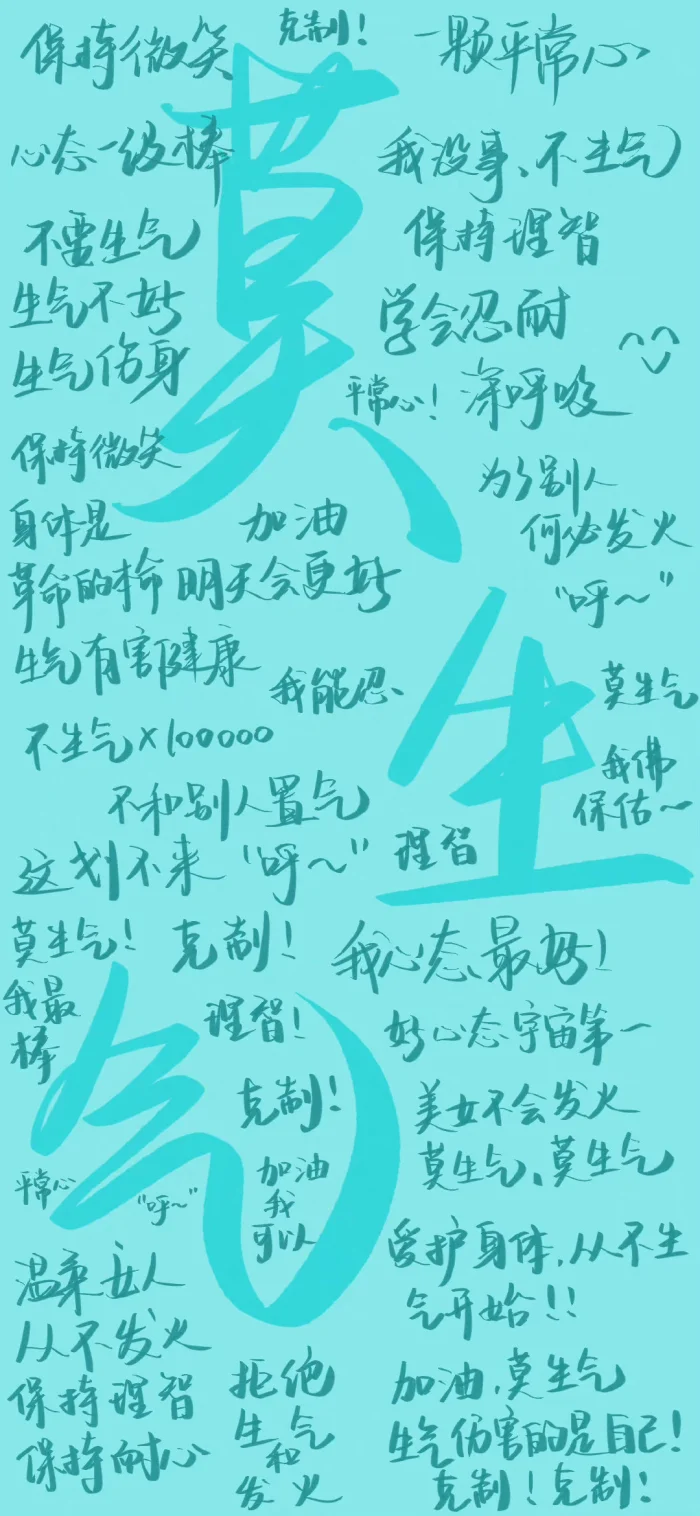 保持微笑
克制！
一颗平常心
心态一级棒
我没事、不生气
不要生气
保持理智
生气不好
学会忍耐
生气伤身
平常心！
深呼吸
保持微笑
为了别人
何必发火
“呼～”
身体是
革命的本命
加油
明天会更好
生气有害健康
我能忍
莫生气
不生气×100000
我佛
保佑～
不和别人置气
这划不来
“呼～”
理智
莫生气！
克制！
我心态最好！
我最
棒
理智！
好心态宇宙第一
克制！
美女不会发火
莫生气、莫生气
平常心
“呼～”
加油
我
可以
爱护身体，从不生
气开始！！
温柔女人
从不发火
保持理智
保持耐心
拒绝
生气
和
发火
加油，莫生气
生气伤害的是自己！
克制！克制！
莫
生
气